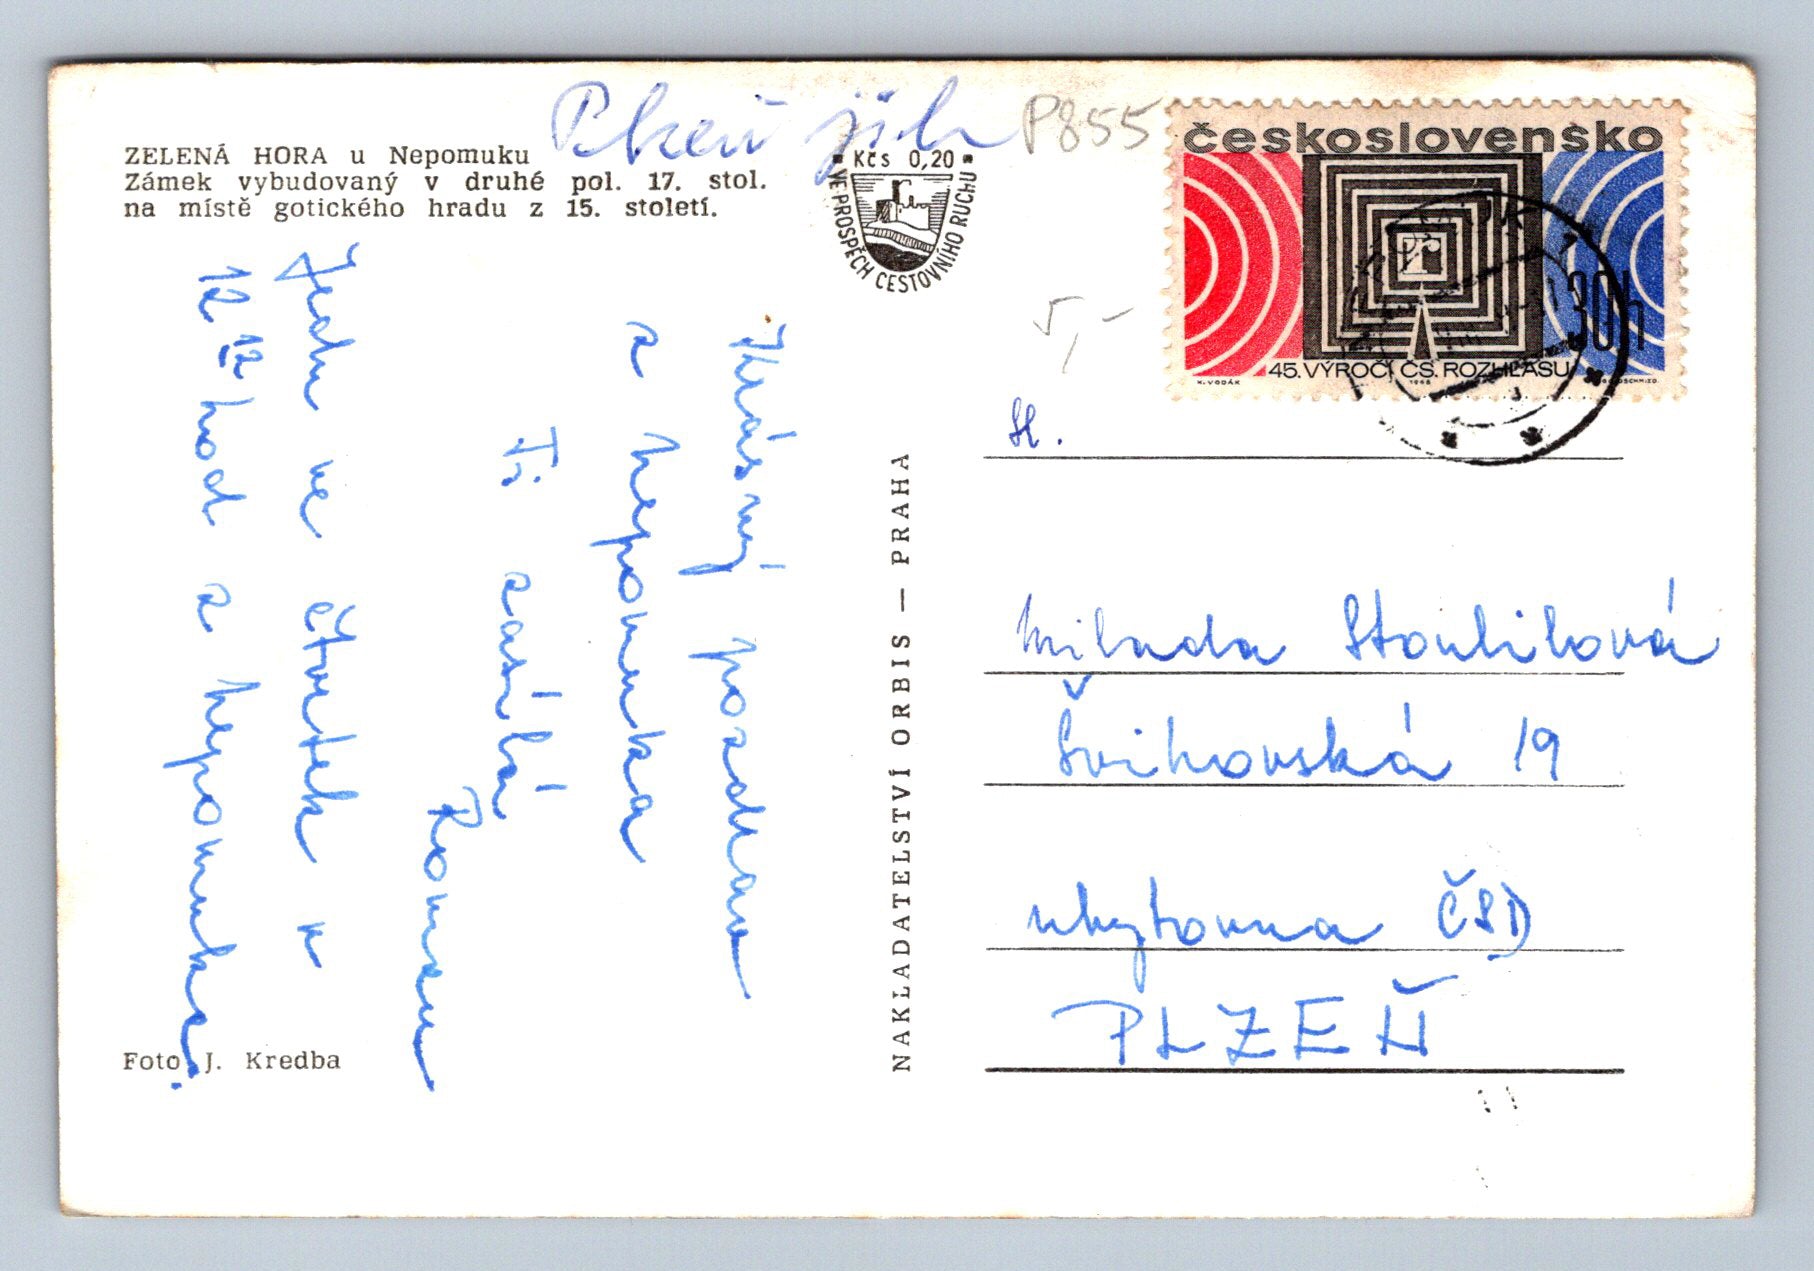 Plzeň jih P855
ZELENÁ HORA u Nepomuku
Zámek vybudovaný v druhé pol. 17. stol.
na místě gotického hradu z 15. století.
Kčs 0,20
VE PROSPĚCH CESTOVNÍHO RUCHU
československo
r
30h
45. VÝROČÍ ČS. ROZHLASU
K. VODÁK
1968
5,-
Krásný pozdrav
z Nepomuka
Ti zasílá
Roman
Jedu ve čtvrtek v
12 12 hod z Nepomuka.
Foto J. Kredba
NAKLADATELSTVÍ ORBIS — PRAHA
Sl.
Milada Stoulilová
Švihovská 19
ubytovna ČSD
PLZEŇ